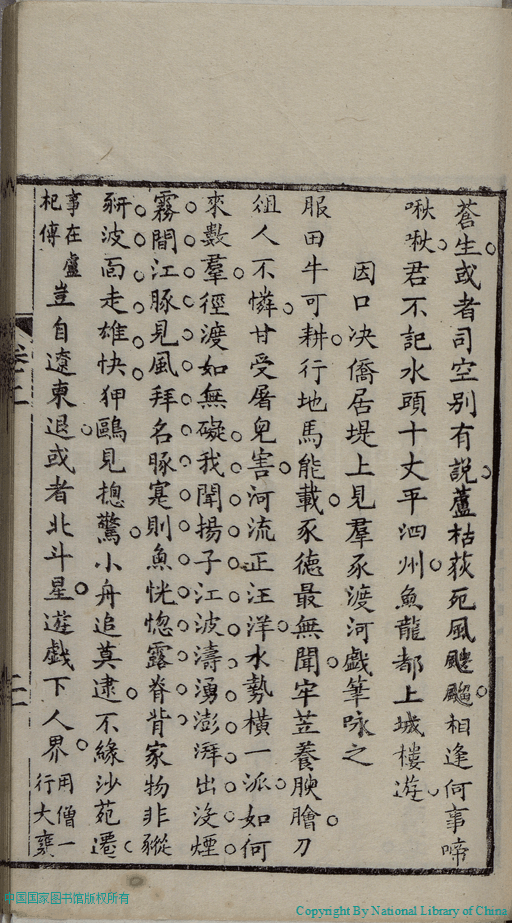 蒼生或者司空別有說蘆枯荻死風颼飀相逢何事啼
啾啾君不記水頭十丈平泗州魚龍都上城樓遊
因口决僑居堤上見羣豕渡河戲筆咏之
服田牛可耕行地馬能載豕德最無聞牢苙養腴膾刀
俎人不憐甘受屠兒害河流正汪洋水勢橫一派如何
來數羣徑渡如無礙我聞揚子江波濤湧澎湃出沒煙
霧間江豚見風拜名豚寔則魚恍惚露脊背家物非豵
豣波面走雄快狎鷗見摠驚小舟追莫逮不緣沙苑遷
事在盧
杞傳
豈自遼東退或者北斗星遊戲下人界
用僧一
行大甕
卷上
中国国家图书馆版权所有
Copyright By National Library of China